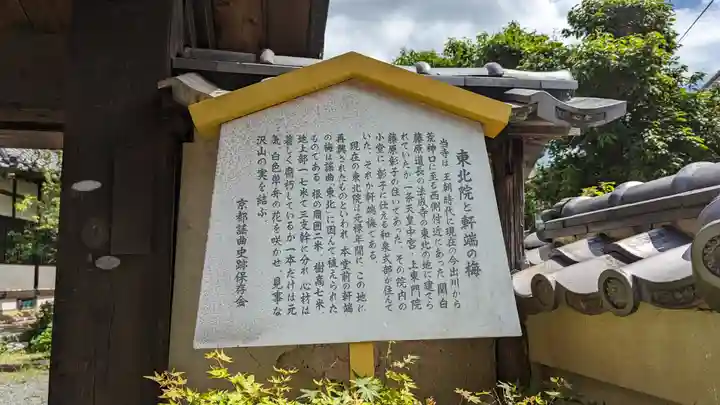 東北院と軒端の梅
当寺は、王朝時代に現在の今出川から
荒神口に至る西側付近にあった、関白
藤原道長の法成寺の東北の地に建てら
れていたが、一条天皇中宮、上東門院
藤原彰子の住いであった。その院内の
小堂に、彰子に仕える和泉式部が住んで
いた。それが軒端梅である。
現在の東北院は元禄年間に、この地に
再興されたものといわれ、本堂前の軒端
の梅は謡曲「東北」に因んて植えられた
ものである。根の周囲二米、樹高七米、
地上部一七米で三支幹に分れ、心材は
著しく腐朽しているが一本だけは元
気、白色単弁の花を咲かせ、見事な
沢山の実を結ぶ。
京都謡曲史跡保存会